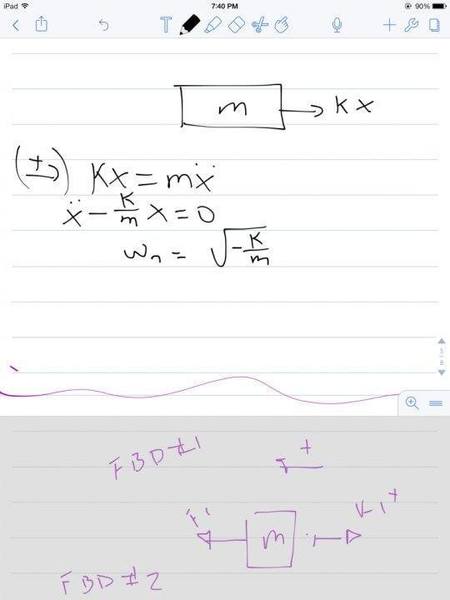 iPad 7:40 PM 90%
T
m → Kx
(+→) Kx = mẍ
ẍ - K/m x = 0
ωn = √-K/m
FBD #1 +
m
FBD #2